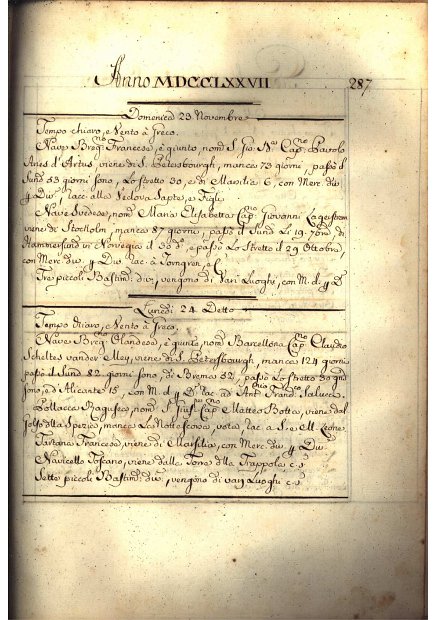 Anno MDCCLXXVII 287
Domenica 23. Novembre
Tempo chiaro, e Vento à Greco.
Nave Francese, è giunto, nomᵗᵒ S. Gio: Capⁿᵒ
d'Artus viene di S. Petersbourgh, manca 73 giorni, passò il
Sund 53 giorni sono, Lo stretto 30, e di Marsilia 6, con Merc. div.
p. Div. rac. alla Vedova e Figli
Nave Svedese, nomᵗᵃ Maria Elisabetta Capⁿᵒ Giovanni Lagerstrom
viene di Stocholm, manca 87 giorni, passò il Sund Le 19. 7bre di
in Norvegia il d°, e passò Lo Stretto il 29 Ottobre,
con Merc. div. p. Div. rac. à Torngren, e C.
Tre piccoli Bastimᵗⁱ div. vengono di Varj Luoghi, con M. d. p. D.
Lunedì 24. Detto
Tempo chiaro, e Vento à Greco.
Nave Olandese, è giunto, nomᵗᵒ Barcellona Capⁿᵒ Claudio
Scheltes vander Meij, viene di S. Petersbourgh, manca 124 giorni
passò il Sund 82. giorni sono, di Brema 52, passò Lo stretto 30
sono, e d'Alicante 15, con M. d. p. D. rac. ad Antᵒ Francᵒ Salucci.
Pollacca Raguseo, nomᵗᵃ S. Capⁿᵒ Matteo Botta, viene dal
Golfo della Spezia, manca La Notte scorsa, vota, rac. a S. e M. Leone.
Tartana Francese, viene di Marsilia, con Merc. div. p. Div.
Navicello Toscano, viene dalla Torre della Trappola c. s.
Sette piccoli Bastimᵗⁱ div. vengono di varj Luoghi c. s.